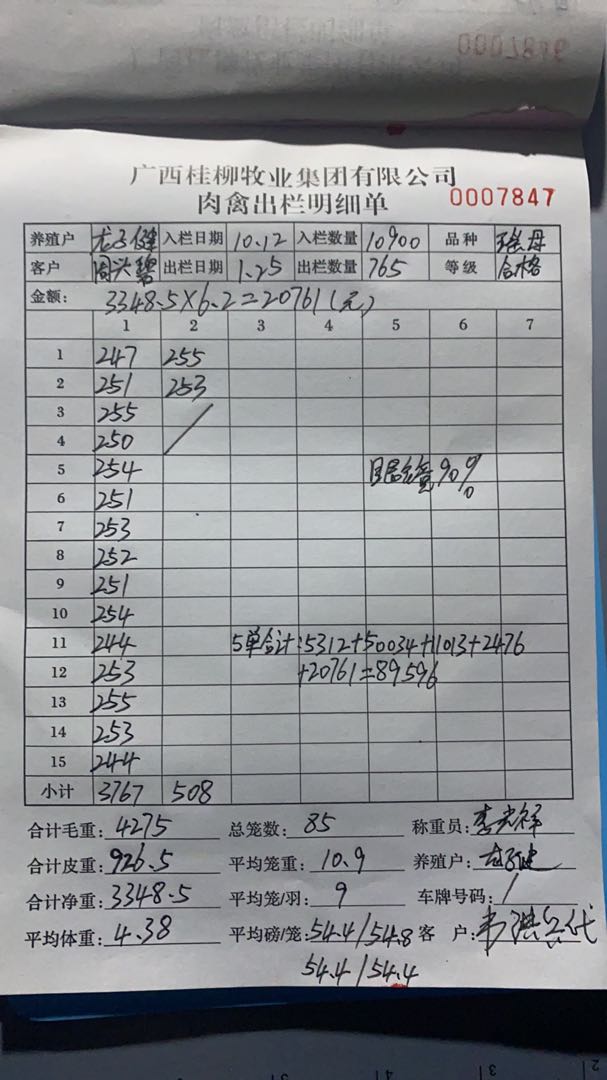 广西桂柳牧业集团有限公司
肉禽出栏明细单 0007847
养殖户 入栏日期 10.12 入栏数量 10900 品种
客户 周兴碧 出栏日期 1.25 出栏数量 765 等级 合格
金额: 3348.5×6.2=20761(元)
1 2 3 4 5 6 7
1 247 255
2 251 253
3 255
4 250
5 254 90%
6 251
7 253
8 252
9 251
10 254
11 244 5单合计:5312+50034+11013+2476
12 253 +20761=89596
13 255
14 253
15 244
小计 3767 508
合计毛重: 4275 总笼数: 85 称重员:
合计皮重: 926.5 平均笼重: 10.9 养殖户:
合计净重: 3348.5 平均笼/羽: 9 车牌号码: /
平均体重: 4.38 平均磅/笼: 54.4/54.8 客 户:
54.4/54.4